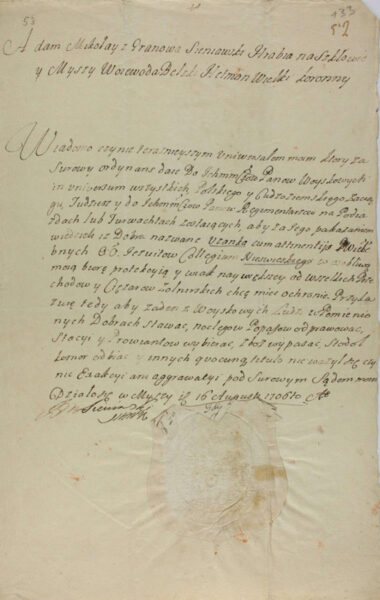 53
133
52
Adam Mikołay z Granowa Sieniawski Hrabia na Szkłowie
y Myszy Woiewoda Bełski Hetman Wielki Koronny
Wiadomo czynię teraznieyszym Uniwersałem moim ktory za
Surowy ordynans daię Do Ichmm Panow Woyskowych
in universum wszystkich Polskiego y Cudzoziemskiego Zacią
gu, Tudziesz y do Ichmciow Panow Regimentarzow na Podia
zdach lub Furwachtach zostaiących, aby za tego pokazaniem
wiedzieli iż Dobra nazwane Uzanka cum attinentijs Wiele
bnych OO. Jesuitow Collegium Nieswieskiego to osobliwą
moią biorę protekcyią y one iak naywiększey od wszelkich Prze
chodow y Cięzarow Zołnirskich chcę mieć ochronie. Przyka
zuię tedy aby zaden z Woyskowych Ludzi w Pomienio
nych Dobrach stawac, noclegow Popasow odprawowac,
Stacyi y Prowiantow wybierac, zboz wypasac, Stodoł
komor odbiac y innych quocunq titulo nie wazył się czy
nic Exakcyi ani aggrawacyi pod Surowym Sądem moim
Działosę w Myszy 16 Augusti 1706to Ao